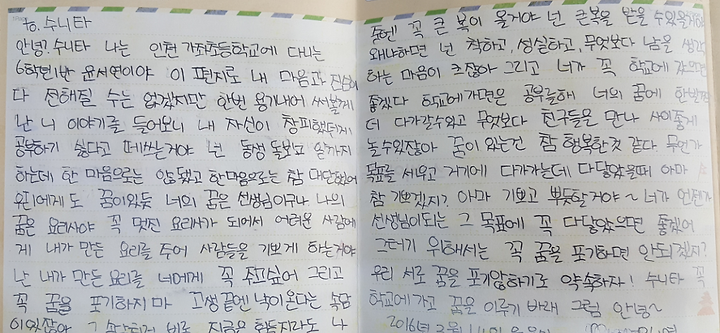 to. 수니타
안녕? 수니타 나는 인천 가좌초등학교에 다니는
6학년1반 윤서연이야 이 편지로 내 마음과 진심이
다 전해질 수는 없겠지만 한번 용기내어 써볼게
난 니 이야기를 들어보니 내 자신이 창피했던게
공부하기 싫다고 떼쓰는거야 넌 동생 돌보고 일까지
하는데 한 마음으로는 안됐고 한마음으로는 참 대단했어
우린에게도 꿈이있듯 너의 꿈은 선생님이구나 나의
꿈은 요리사야 꼭 멋진 요리사가 되어서 어려운 사람에
게 내가 만든 요리를 주어 사람들을 기쁘게 하는거야
난 내가 만든 요리를 너에게 꼭 주고싶어 그리고
꼭 꿈을 포기하지 마 고생 끝엔 낙이 온다는 속담
이있잖아 그 속담처럼 비록 지금은 힘들지라도 나
중엔 꼭 큰 복이 올거야 넌 큰복을 받을 수있을거야
왜냐하면 넌 착하고, 성실하고, 무엇보다 남을 생각
하는 마음이 크잖아 그리고 너가 꼭 학교에 갔으면
좋겠다 학교에가면은 공부를해 너의 꿈에 한발짝
더 다가갈수있고 무엇보다 친구들을 만나 사이좋게
놀수있잖아 꿈이 있는건 참 행복한것 같다 무언가
목표를 세우고 거기에 다가가는데 다 닿았을때 아마
참 기쁘겠지? 아마 기쁘고 뿌듯할거야~ 너가 언젠가
선생님이되는 그 목표에 꼭 다닿았으면 좋겠어
그러기 위해서는 꼭 꿈을 포기하면 안되겠지?
우리 서로 꿈을 포기않하기로 약속하자! 수니타 꼭
학교에가고 꿈을 이루기 바래 그럼 안녕~
2016년